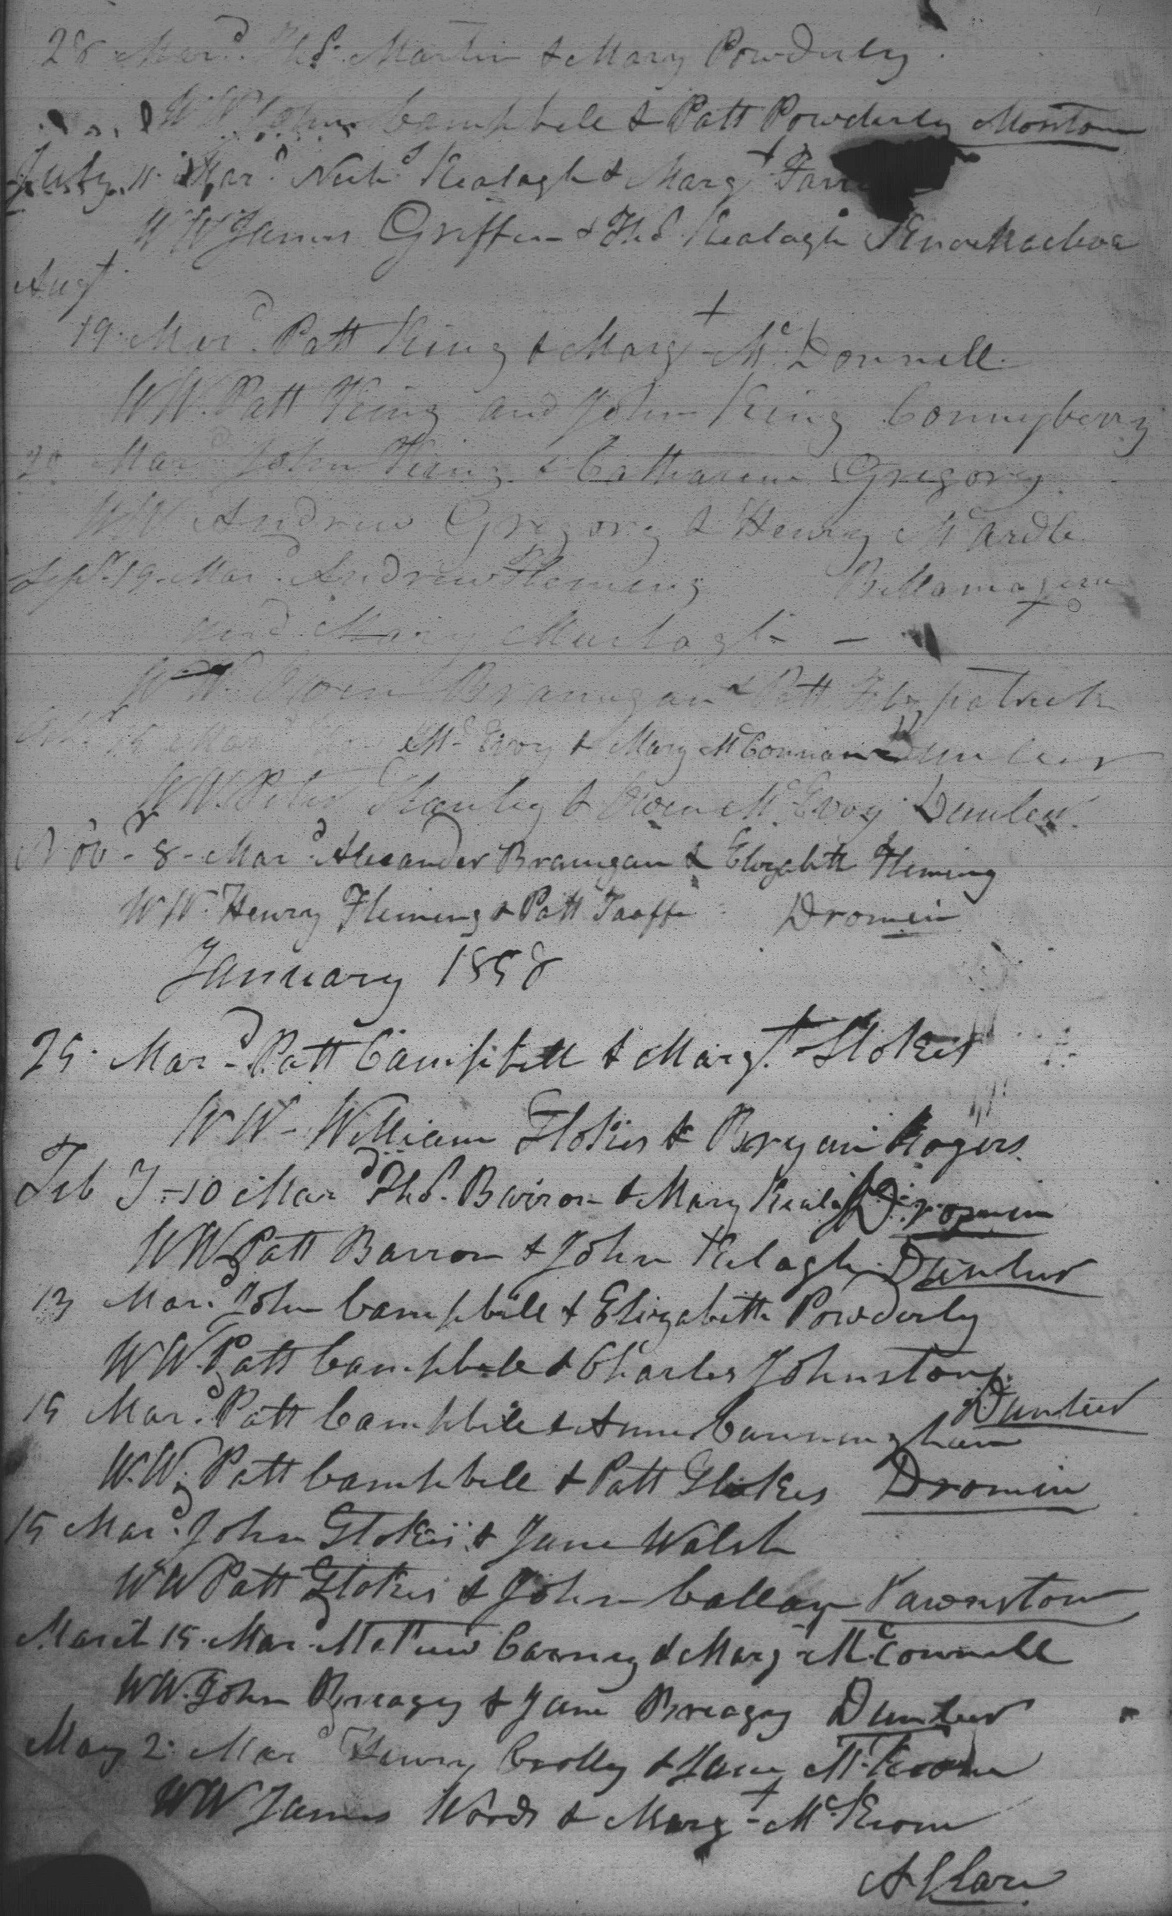 28 Mard. Ths. Martin & Mary Powderly
WW John Campbell & Patt Powderly Mostown
July 11 Mard. Nichs Kealagh & Margt
WW James Griffin & Thos Kealagh
Augt
19 Mard. Patt King & Margt McDonnell
WW. Patt King and John King Conneyberry
Mard John King & Catharine Gregory
WW Andrew Gregory & Henry McArdle
Sept. 19. Mard. Andrew Fleming
and Mary Murtagh
W.W. Owen Branigan & Patt Fitzpatrick
Mard McEvoy & Mary McConnan Dunleer
WW. Peter Stanley & Owen McEvoy Dunleer
Nov. 8 - Mard Alexander Branigan & Elizabeth Fleming
WW. Henry Fleming & Patt Taaffe Dromin
January 1858
25. Mard. Patt Campbell & Margt. Stokes
WW - William Stokes & Bryan Rogers
Feb 10 Mard Thos. Barron & Mary Dromin
WW Patt Barron & John Kelagh Dunleer
13 Mard. John Campbell & Elizabeth Powderly
WW. Patt Campbell & Charles Johnston
Dunleer
15 Mard. Patt Campbell & Anne Cunningham
W.W. Patt Campbell & Patt Stokes Dromin
15 Mard. John Stokes & Jane Walsh
WW Patt Stokes & John Callan
March 15. Mard. Mathew Carney & Margt McConnell
WW. John Breagy & Jane Breagy Dunleer
May 2. Mard Henry Crolly & McKeown
WW James Woods & Margt McKeown